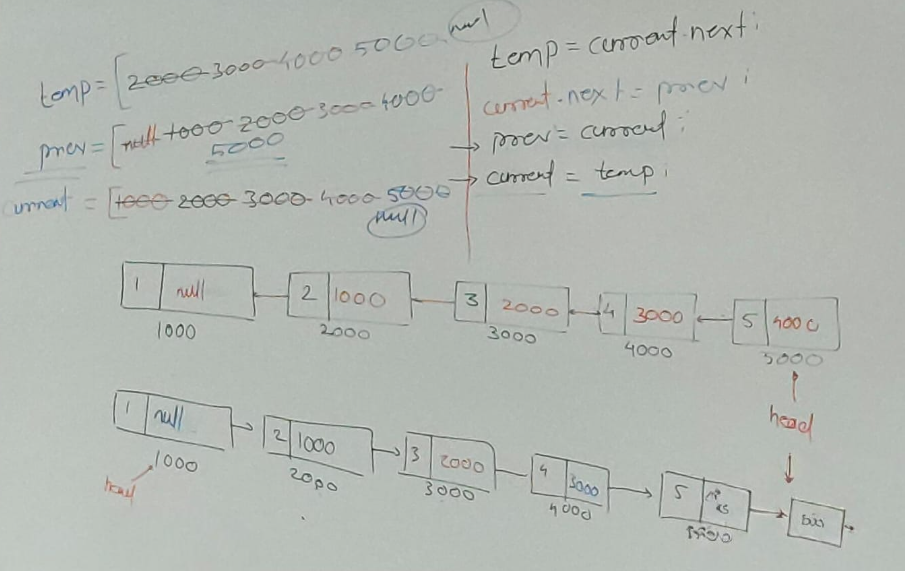 temp = [2000 3000 4000 5000 null
prev = [null 1000 2000 3000 4000
5000
current = [1000 2000 3000 4000 5000
null
temp = current.next;
current.next = prev;
→ prev = current;
→ current = temp;
1 null 2 1000 3 2000 4 3000 5 4000
1000 2000 3000 4000 5000
head
1 null 2 1000 3 2000 4 3000 5
1000 2000 3000 4000